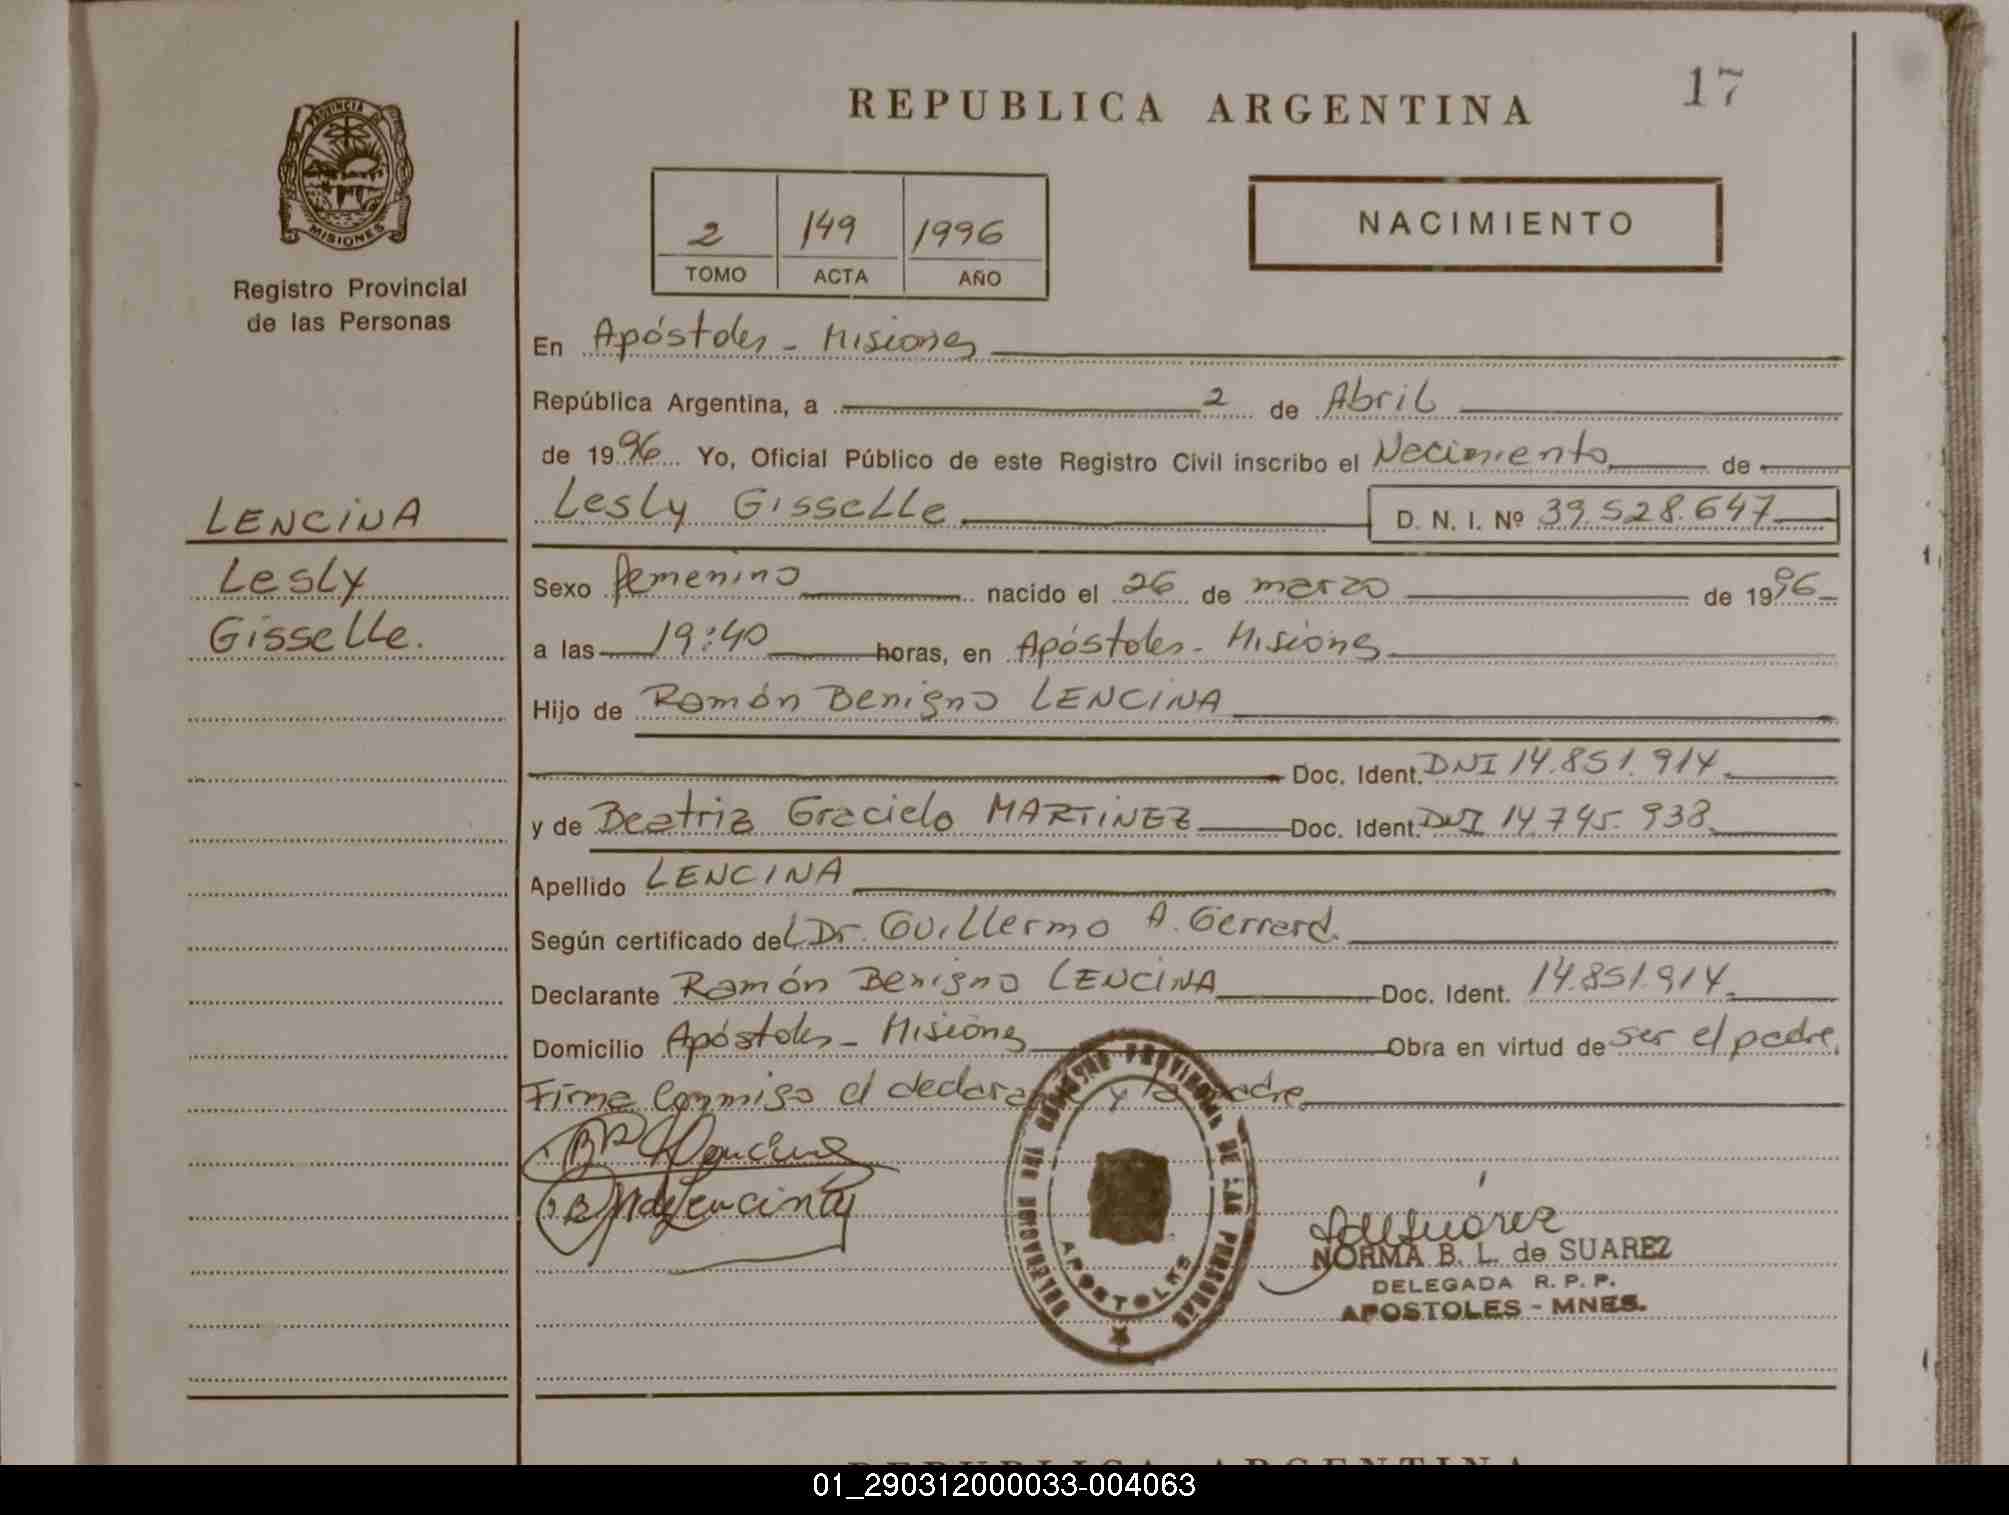 17
REPUBLICA ARGENTINA
PROVINCIA DE
MISIONES
Registro Provincial
de las Personas
2 149 1996
TOMO ACTA AÑO
NACIMIENTO
En Apóstoles - Misiones
República Argentina, a 2 de Abril
de 1996 Yo, Oficial Público de este Registro Civil inscribo el Nacimiento de
Lesly Gisselle D. N. I. Nº 39.528.647
LENCINA
Lesly
Gisselle.
Sexo femenino nacido el 26 de marzo de 1996
a las 19:40 horas, en Apóstoles - Misiones
Hijo de Ramón Benigno LENCINA
Doc. Ident. DNI 14.851.914
y de Beatriz Graciela MARTINEZ Doc. Ident. DNI 14.745.938
Apellido LENCINA
Según certificado del Dr. Guillermo A. Gerrard.
Declarante Ramón Benigno LENCINA Doc. Ident. 14.851.914
Domicilio Apóstoles - Misiones Obra en virtud de ser el padre.
Firma conmigo el declarante y la madre
DELEGACION DEL REGISTRO PROVINCIAL DE LAS PERSONAS
APOSTOLES
NORMA B. L. de SUAREZ
DELEGADA R. P. P.
APOSTOLES - MNES.
REPUBLICA ARGENTINA
01_290312000033-004063